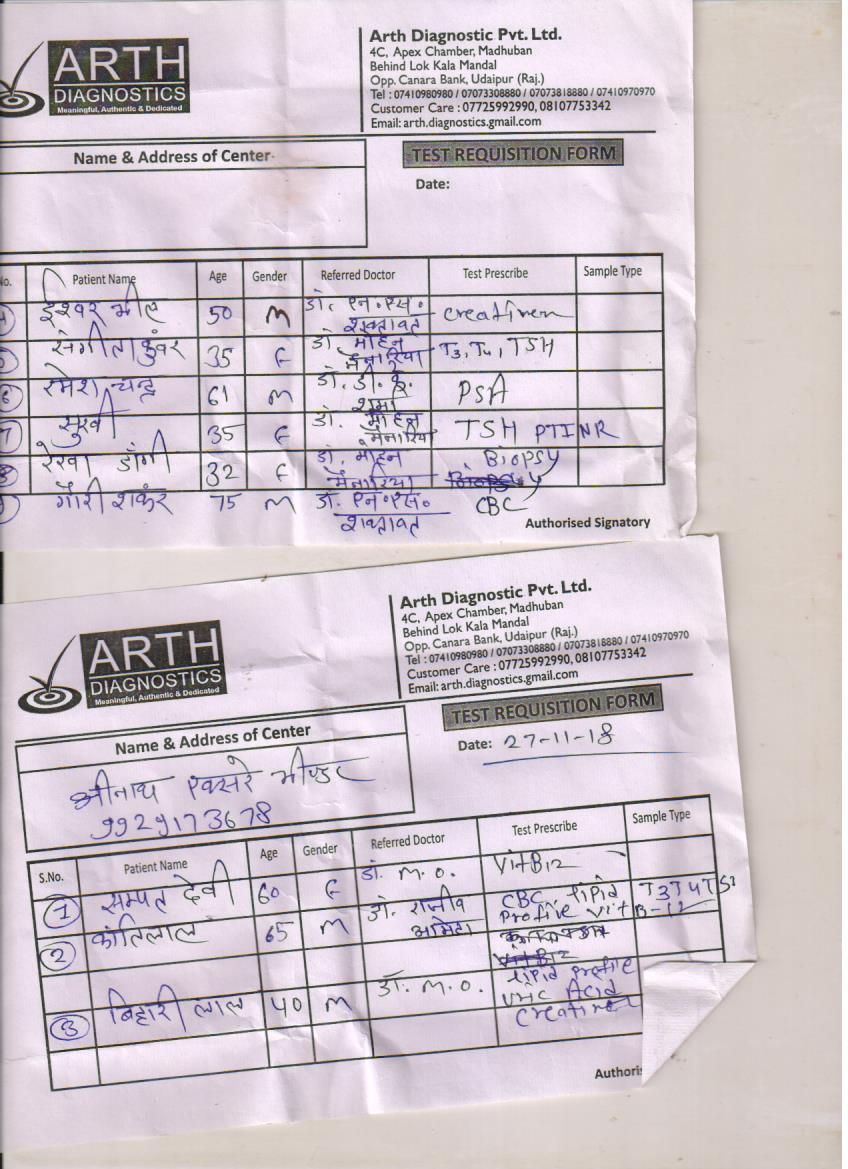 ARTH
DIAGNOSTICS
Meaningful, Authentic & Dedicated
Arth Diagnostic Pvt. Ltd.
4C, Apex Chamber, Madhuban
Behind Lok Kala Mandal
Opp. Canara Bank, Udaipur (Raj.)
Tel : 07410980980 / 07073308880 / 07073818880 / 07410970970
Customer Care : 07725992990, 08107753342
Email: arth.diagnostics.gmail.com
Name & Address of Center
TEST REQUISITION FORM
Date:
No. Patient Name Age Gender Referred Doctor Test Prescribe Sample Type
ईश्वर भील 50 M डॉ. एन॰एस॰ शक्तावत
संगीता कुंवर 35 F डॉ. मोहन मेनारिया T3, T4, TSH
6 रमेश चन्द्र 61 M डॉ. डी. के. शर्मा PSA
7 सुखी 35 F डॉ. मोहन मेनारिया TSH PTINR
रेखा डांगी 32 F डॉ. मोहन मेनारिया Biopsy
गौरी शंकर 75 M डॉ. एन॰एस॰ शक्तावत CBC
Authorised Signatory
ARTH
DIAGNOSTICS
Meaningful, Authentic & Dedicated
Arth Diagnostic Pvt. Ltd.
4C, Apex Chamber, Madhuban
Behind Lok Kala Mandal
Opp. Canara Bank, Udaipur (Raj.)
Tel : 07410980980 / 07073308880 / 07073818880 / 07410970970
Customer Care : 07725992990, 08107753342
Email: arth.diagnostics.gmail.com
Name & Address of Center
TEST REQUISITION FORM
Date: 27-11-18
श्रीनाथ एक्सरे भीण्डर
9929173678
S.No. Patient Name Age Gender Referred Doctor Test Prescribe Sample Type
1 सम्पत देवी 60 F डॉ. M.O. Vit B12
2 कांतिलाल 65 M डॉ. राजीव आमेटा CBC, lipid T3 T4
Profive vit B-12
3 बिहारी लाल 40 M डॉ. M.O. lipid profile
Uric Acid
Authoris